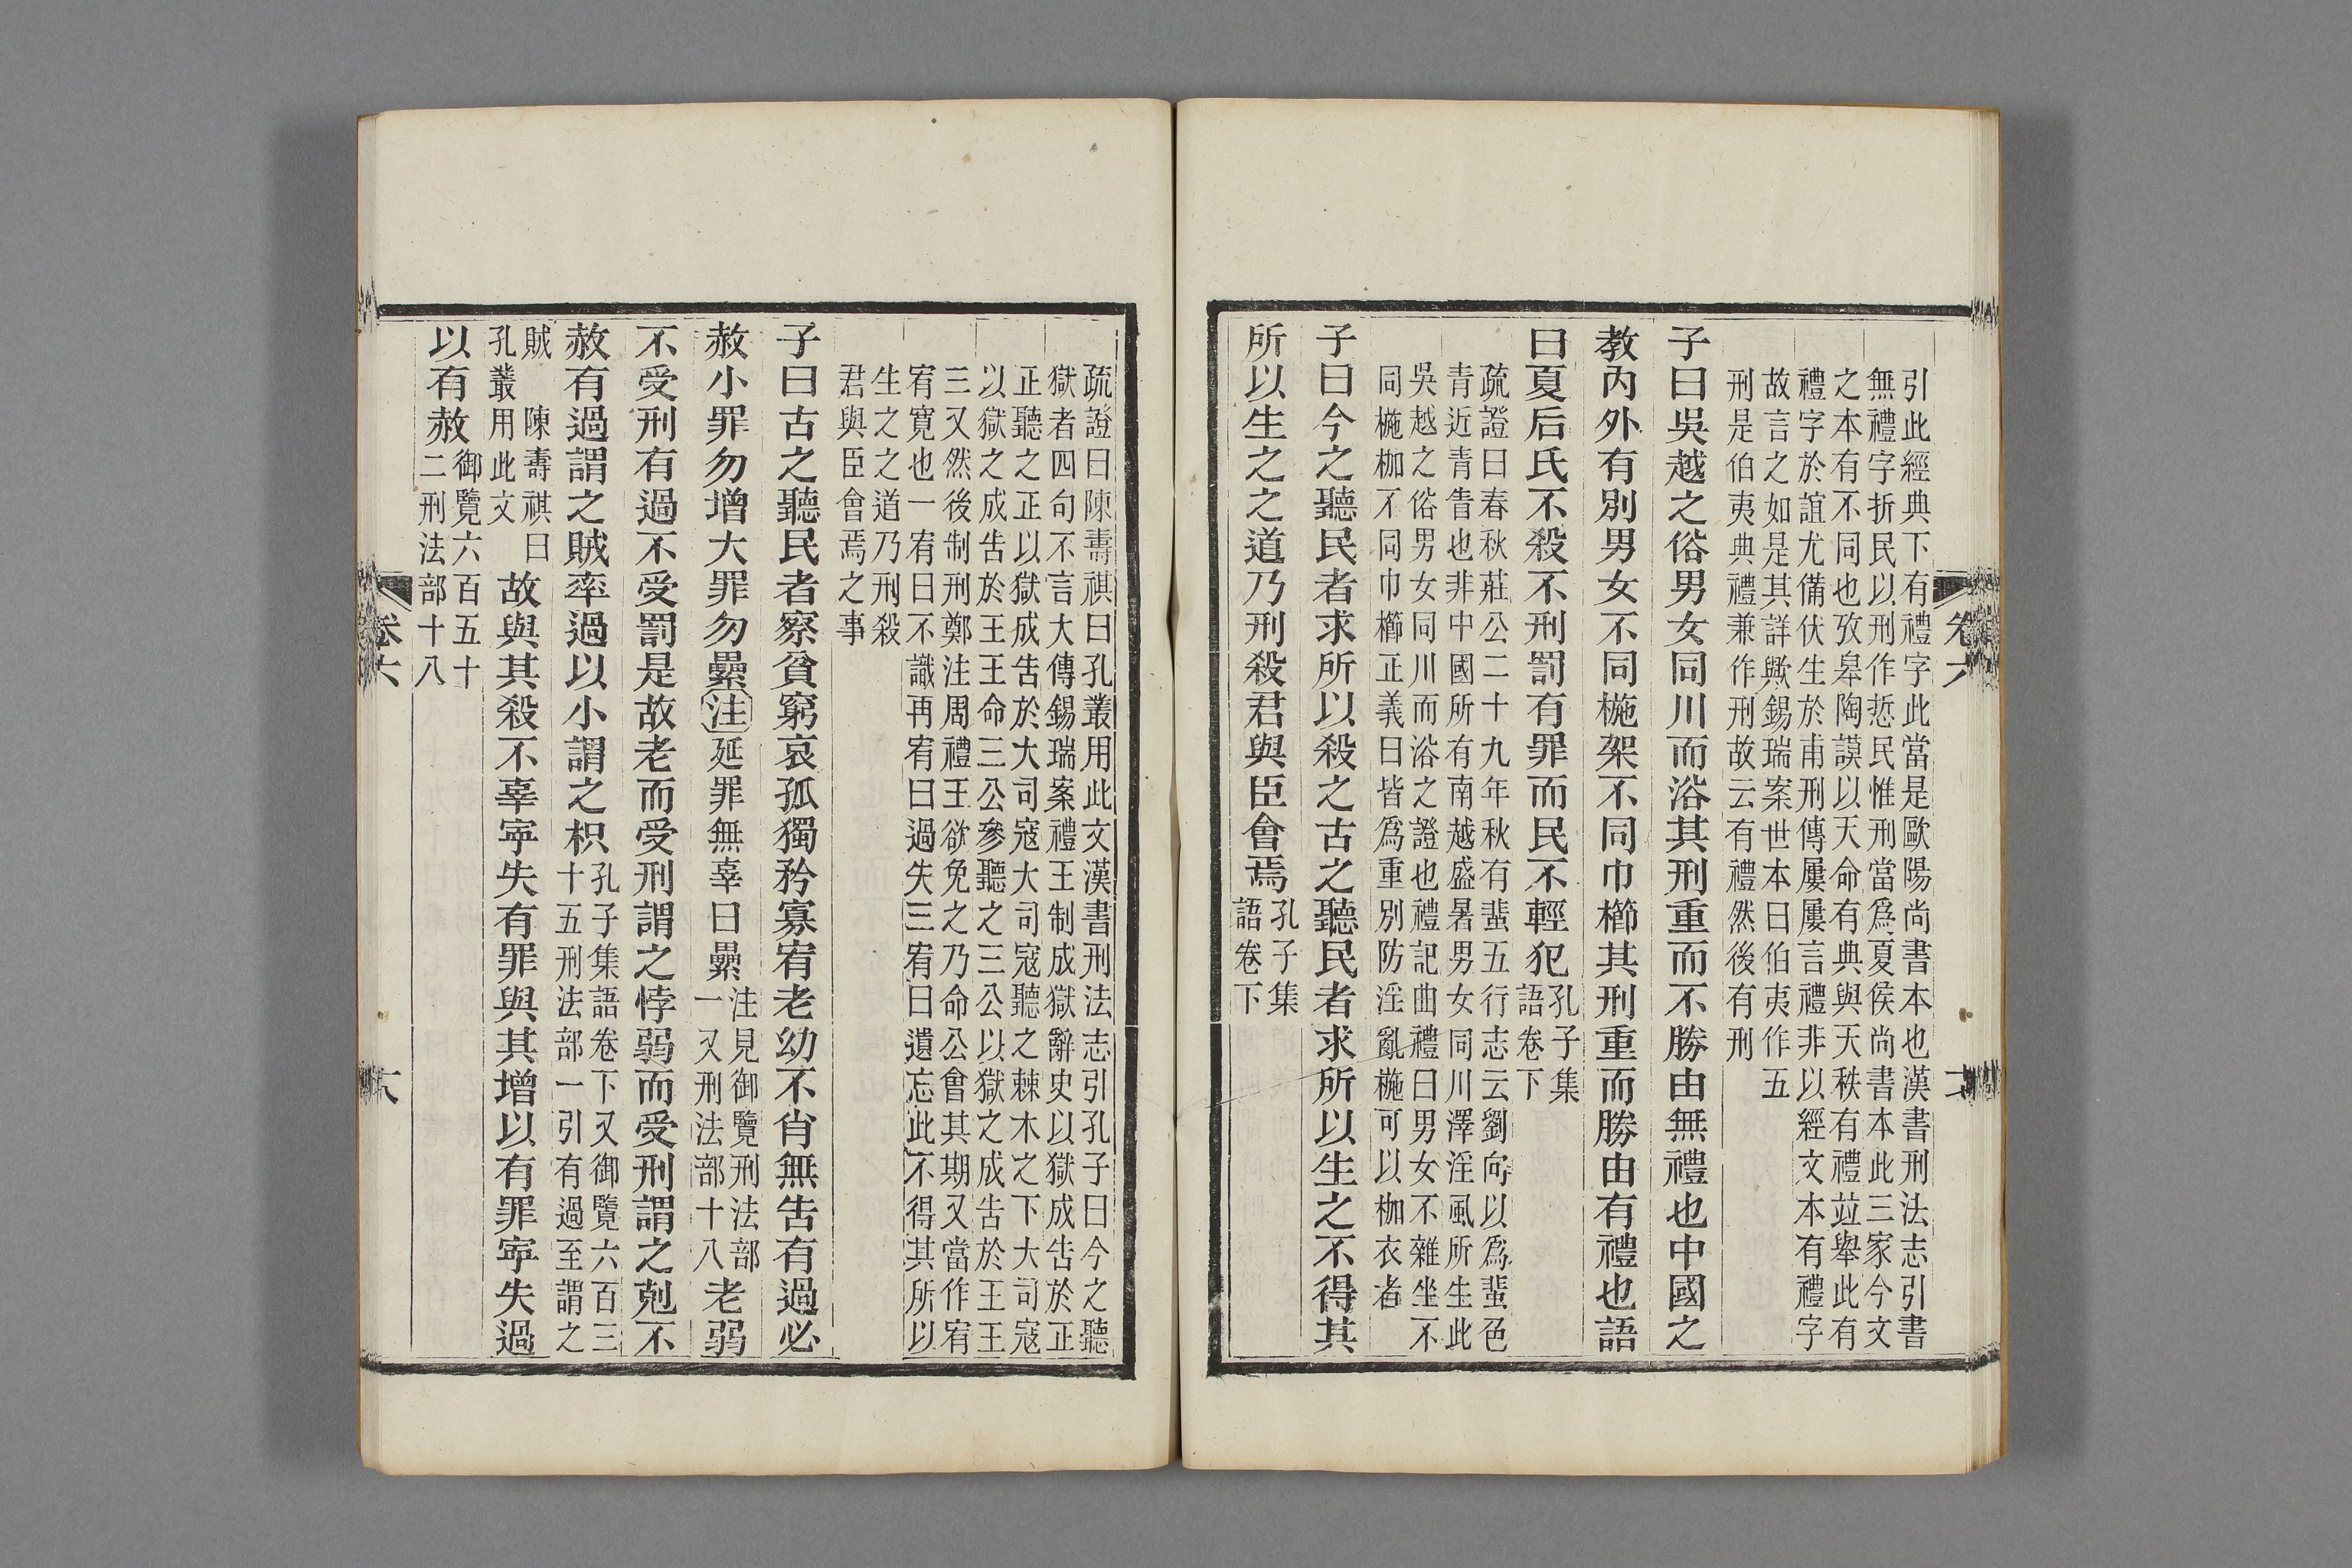 引此經典下有禮字此當是歐陽尚書本也漢書刑法志引書
無禮字折民以刑作悊民惟刑當爲夏侯尚書本此三家今文
之本有不同也攷皋陶謨以天命有典與天秩有禮竝舉此有
禮字於誼尤備伏生於甫刑傳屢屢言禮非以經文本有禮字
故言之如是其詳歟錫瑞案世本曰伯夷作五
刑是伯夷典禮兼作刑故云有禮然後有刑
子曰吳越之俗男女同川而浴其刑重而不勝由無禮也中國之
教內外有別男女不同椸架不同巾櫛其刑重而勝由有禮也語
曰夏后氏不殺不刑罰有罪而民不輕犯孔子集
語卷下
疏證曰春秋莊公二十九年秋有蜚五行志云劉向以爲蜚色
青近青眚也非中國所有南越盛暑男女同川澤淫風所生此
吳越之俗男女同川而浴之證也禮記曲禮曰男女不雜坐不
同椸枷不同巾櫛正義曰皆爲重別防淫亂椸可以枷衣者
子曰今之聽民者求所以殺之古之聽民者求所以生之不得其
所以生之之道乃刑殺君與臣會焉孔子集
語卷下
卷六
疏證曰陳壽祺曰孔叢用此文漢書刑法志引孔子曰今之聽
獄者四句不言大傳錫瑞案禮王制成獄辭史以獄成告於正
正聽之正以獄成告於大司寇大司寇聽之棘木之下大司寇
以獄之成告於王王命三公參聽之三公以獄之成告於王王
三又然後制刑鄭注周禮王欲免之乃命公會其期又當作宥
宥寬也一宥曰不識再宥曰過失三宥曰遺忘此不得其所以
生之之道乃刑殺
君與臣會焉之事
子曰古之聽民者察貧窮哀孤獨矜寡宥老幼不肖無告有過必
赦小罪勿增大罪勿纍注延罪無辜曰纍注見御覽刑法部
一又刑法部十八老弱
不受刑有過不受罰是故老而受刑謂之悖弱而受刑謂之剋不
赦有過謂之賊率過以小謂之枳孔子集語卷下又御覽六百三
十五刑法部一引有過至謂之
賊 陳壽祺曰
孔叢用此文故與其殺不辜寧失有罪與其增以有罪寧失過
以有赦御覽六百五十
二刑法部十八
卷六